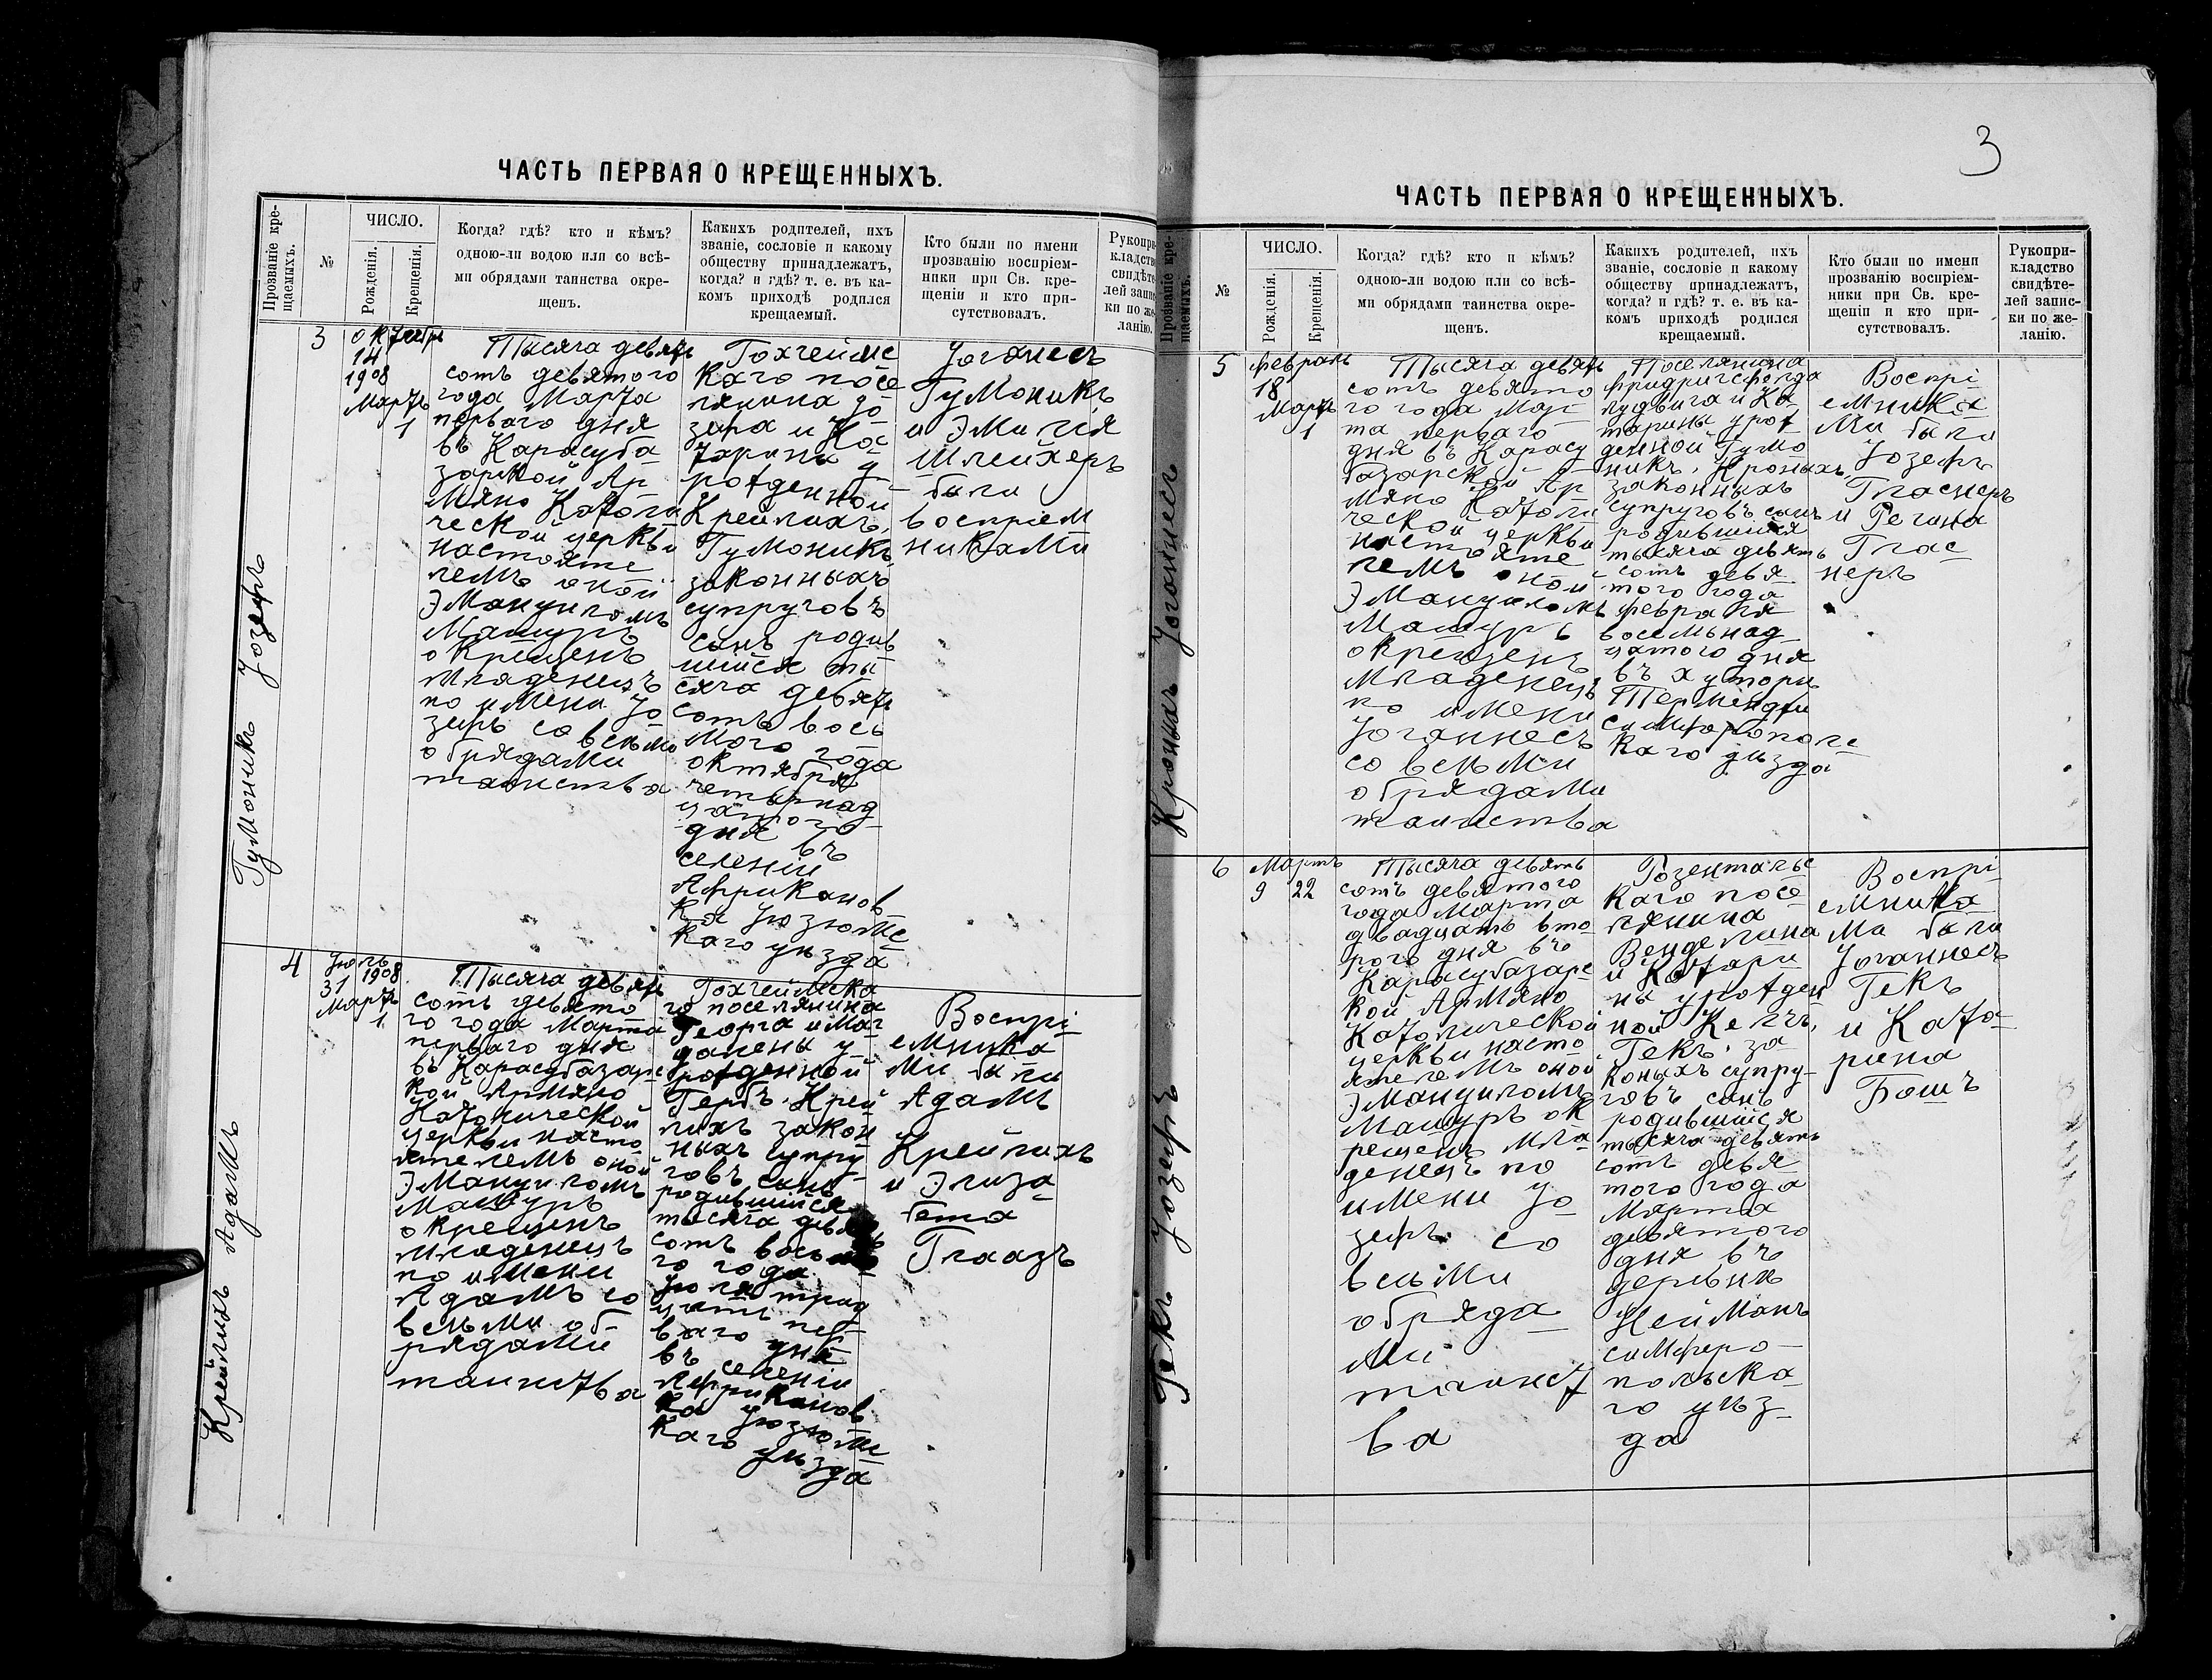 ЧАСТЬ ПЕРВАЯ О КРЕЩЕННЫХЪ.
Прозваніе кре-
щаемыхъ.
№
ЧИСЛО.
Рожденія.
Крещенія.
Когда? гдѣ? кто и кѣмъ?
одною-ли водою или со всѣ-
ми обрядами таинства окре-
щенъ.
Какихъ родителей, ихъ
званіе, сословіе и какому
обществу принадлежатъ,
когда? и гдѣ? т. е. въ ка-
комъ приходѣ родился
крещаемый.
Кто были по имени
прозванію воспріем-
ники при Св. кре-
щеніи и кто при-
сутствовалъ.
Рукопри-
кладство
свидѣте-
лей запис-
ки по же-
ланію.
Гумоникъ Іозефъ
3
Октября
14
1908
Мартъ
1
Тысяча девять
сотъ девятого
года Марта
перваго дня
въ Карасуба
зарской Ар
мяно Католи
ческой церкви
настояте
лемъ оной
Эмануиломъ
Машуръ
окрещенъ
младенецъ
по имени Іо
зефъ со всѣми
обрядами
таинства
Гохгеймс
каго посе
лянина Іо
зефа и Ка
тарины у
рожденной
Крейлихъ,
Гумоникъ
законныхъ
супруговъ
сынъ родив
шійся ты
сяча девять
сотъ вось
мого года
октября
четырнад
цатого
дня въ
селеніи
Африканов
ка Изюмс
каго уѣзда
Іоганесъ
Гумоникъ
и Эмилія
Шлейхеръ
были
воспріем
никами
Крейлихъ Адамъ
4
Іюль
31 1908
Мартъ
1
Тысяча девять
сотъ девято
го года Марта
перваго дня
въ Карасубазарс
кой Армяно
Католической
церкви насто
ятелемъ оной
Эмануиломъ
Машуръ
окрещенъ
младенецъ
по имени
Адамъ со
всѣми об-
рядами
таинства
Гохгеймска
го поселянина
Георга и Маг
далены у
рожденной
Гербъ, Крей
лихъ закон
ныхъ супру
говъ сынъ
родившійся
тысяча девять
сотъ восьмо
го года
Іюля трид
цать пер
ваго дня
въ селеніи
Африканов
ка Изюмс
каго уѣзда
Воспрі
емника
ми были
Адамъ
Крейлихъ
и Элиза
бета
Глаазъ
3
ЧАСТЬ ПЕРВАЯ О КРЕЩЕННЫХЪ.
Прозваніе кре-
щаемыхъ.
№
ЧИСЛО.
Рожденія.
Крещенія.
Когда? гдѣ? кто и кѣмъ?
одною-ли водою или со всѣ-
ми обрядами таинства окре-
щенъ.
Какихъ родителей, ихъ
званіе, сословіе и какому
обществу принадлежатъ,
когда? и гдѣ? т. е. въ ка-
комъ приходѣ родился
крещаемый.
Кто были по имени
прозванію воспріем-
ники при Св. кре-
щеніи и кто при-
сутствовалъ.
Рукопри-
кладство
свидѣте-
лей запис-
ки по же-
ланію.
Кронихъ Іоганнесъ
5
Февраль
18
Мартъ
1
Тысяча девять
сотъ девято
го года Мар
та перваго
дня въ Карасу
базарской Ар
мяно Католи
ческой церкви
настояте
лемъ оной
Эмануиломъ
Машуръ
окрещенъ
младенецъ
по имени
Іоганнесъ
со всѣми
обрядами
таинства
Поселянина
Фридрихсфельда
Лудвига и Ка
тарины урож
денной Гумо
никъ, Кронихъ,
законныхъ
супруговъ сынъ
родившійся
тысяча девять
сотъ девя
того года
февраля
восемьнад
цатого дня
въ хуторѣ
Терменджи
Симферополс
каго уѣзда
Воспрі
емника
ми были
Іозефъ
Гласнеръ
и Регина
Глас
неръ
Гекъ Іозефъ
6
Мартъ
9 22
Тысяча девять
сотъ девятого
года Марта
двадцать вто
рого дня въ
Карасубазарс
кой Армяно
Католической
церкви насто
ятелемъ оной
Эмануиломъ
Машуръ ок
рещенъ мла
денецъ по
имени Іо
зефъ со
всѣми
обряда
ми
таинст
ва
Розентальс
каго посе
лянина
Венделина
и Катари
ны урожден
ной Кельъ,
Гекъ, за
коныхъ супру-
говъ сынъ
родившійся
тысяча девять
сотъ девя
того года
Марта
девятого
дня въ
деревнѣ
Нейманъ
симферо-
польска
го уѣз
да
Воспрі
емника
ми были
Іоганнесъ
Гекъ
и Ката
рина
Бошъ